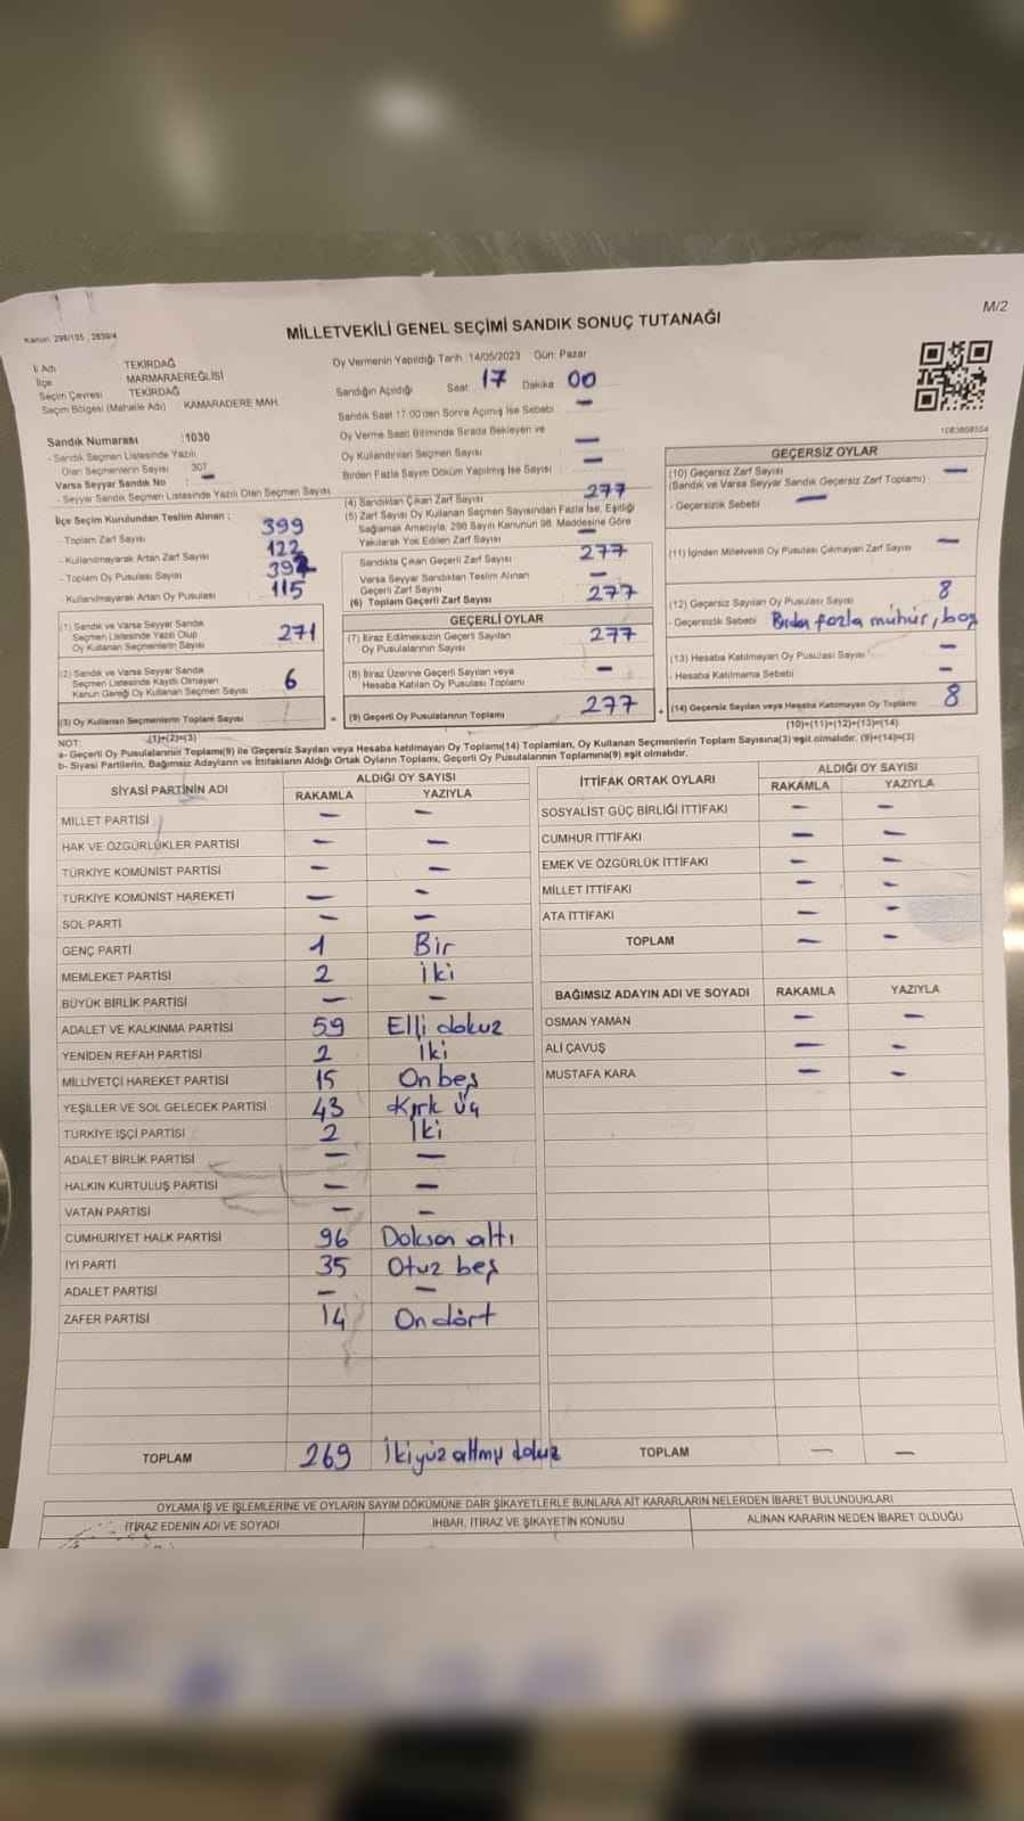 M/2
Kanun: 298/105, 2839/4
MİLLETVEKİLİ GENEL SEÇİMİ SANDIK SONUÇ TUTANAĞI
İl Adı TEKİRDAĞ
İlçe MARMARAEREĞLİSİ
Seçim Çevresi TEKİRDAĞ
Seçim Bölgesi (Mahalle Adı) KAMARADERE MAH.
Sandık Numarası :1030
- Sandık Seçmen Listesinde Yazılı
Olan Seçmenlerin Sayısı 307
Varsa Seyyar Sandık No : –
- Seyyar Sandık Seçmen Listesinde Yazılı Olan Seçmen Sayısı
Oy Vermenin Yapıldığı Tarih :14/05/2023 Gün: Pazar
Sandığın Açıldığı Saat 17 Dakika 00
Sandık Saat 17:00'den Sonra Açılmış İse Sebebi –
Oy Verme Saati Bitiminde Sırada Bekleyen ve
Oy Kullandırılan Seçmen Sayısı –
Birden Fazla Sayım Döküm Yapılmış İse Sayısı –
1083808554
İlçe Seçim Kurulundan Teslim Alınan :
- Toplam Zarf Sayısı 399
- Kullanılmayarak Artan Zarf Sayısı 122
- Toplam Oy Pusulası Sayısı 392
- Kullanılmayarak Artan Oy Pusulası 115
(1) Sandık ve Varsa Seyyar Sandık
Seçmen Listesinde Yazılı Olup
Oy Kullanan Seçmenlerin Sayısı 271
(2) Sandık ve Varsa Seyyar Sandık
Seçmen Listesinde Kayıtlı Olmayan
Kanun Gereği Oy Kullanan Seçmen Sayısı 6
(3) Oy Kullanan Seçmenlerin Toplam Sayısı
(1)+(2)=(3)
(4) Sandıktan Çıkan Zarf Sayısı 277
(5) Zarf Sayısı Oy Kullanan Seçmen Sayısından Fazla İse, Eşitliği
Sağlamak Amacıyla, 298 Sayılı Kanunun 98. Maddesine Göre
Yakılarak Yok Edilen Zarf Sayısı –
Sandıkta Çıkan Geçerli Zarf Sayısı 277
Varsa Seyyar Sandıktan Teslim Alınan
Geçerli Zarf Sayısı –
(6) Toplam Geçerli Zarf Sayısı 277
GEÇERLİ OYLAR
(7) İtiraz Edilmeksizin Geçerli Sayılan
Oy Pusulalarının Sayısı 277
(8) İtiraz Üzerine Geçerli Sayılan veya
Hesaba Katılan Oy Pusulası Toplamı –
= (9) Geçerli Oy Pusulalarının Toplamı 277 +
GEÇERSİZ OYLAR
(10) Geçersiz Zarf Sayısı –
(Sandık ve Varsa Seyyar Sandık Geçersiz Zarf Toplamı)
- Geçersizlik Sebebi –
(11) İçinden Milletvekili Oy Pusulası Çıkmayan Zarf Sayısı –
(12) Geçersiz Sayılan Oy Pusulası Sayısı 8
- Geçersizlik Sebebi Birden fazla mühür, boş
(13) Hesaba Katılmayan Oy Pusulası Sayısı –
- Hesaba Katılmama Sebebi –
(14) Geçersiz Sayılan veya Hesaba Katılmayan Oy Toplamı 8
(10)+(11)+(12)+(13)=(14)
NOT:
a- Geçerli Oy Pusulalarının Toplamı(9) ile Geçersiz Sayılan veya Hesaba katılmayan Oy Toplamı(14) Toplamları, Oy Kullanan Seçmenlerin Toplam Sayısına(3) eşit olmalıdır. (9)+(14)=(3)
b- Siyasi Partilerin, Bağımsız Adayların ve İttifakların Aldığı Ortak Oyların Toplamı, Geçerli Oy Pusulalarının Toplamına(9) eşit olmalıdır.
SİYASİ PARTİNİN ADI ALDIĞI OY SAYISI
RAKAMLA YAZIYLA
MİLLET PARTİSİ – –
HAK VE ÖZGÜRLÜKLER PARTİSİ – –
TÜRKİYE KOMÜNİST PARTİSİ – –
TÜRKİYE KOMÜNİST HAREKETİ – –
SOL PARTİ – –
GENÇ PARTİ 1 Bir
MEMLEKET PARTİSİ 2 İki
BÜYÜK BİRLİK PARTİSİ – –
ADALET VE KALKINMA PARTİSİ 59 Elli dokuz
YENİDEN REFAH PARTİSİ 2 İki
MİLLİYETÇİ HAREKET PARTİSİ 15 On beş
YEŞİLLER VE SOL GELECEK PARTİSİ 43 Kırk üç
TÜRKİYE İŞÇİ PARTİSİ 2 İki
ADALET BİRLİK PARTİSİ – –
HALKIN KURTULUŞ PARTİSİ – –
VATAN PARTİSİ – –
CUMHURİYET HALK PARTİSİ 96 Doksan altı
İYİ PARTİ 35 Otuz beş
ADALET PARTİSİ – –
ZAFER PARTİSİ 14 On dört
TOPLAM 269 İkiyüz altmış dokuz
İTTİFAK ORTAK OYLARI ALDIĞI OY SAYISI
RAKAMLA YAZIYLA
SOSYALİST GÜÇ BİRLİĞİ İTTİFAKI – –
CUMHUR İTTİFAKI – –
EMEK VE ÖZGÜRLÜK İTTİFAKI – –
MİLLET İTTİFAKI – –
ATA İTTİFAKI – –
TOPLAM – –
BAĞIMSIZ ADAYIN ADI VE SOYADI RAKAMLA YAZIYLA
OSMAN YAMAN – –
ALİ ÇAVUŞ – –
MUSTAFA KARA – –
TOPLAM – –
OYLAMA İŞ VE İŞLEMLERİNE VE OYLARIN SAYIM DÖKÜMÜNE DAİR ŞİKAYETLERLE BUNLARA AİT KARARLARIN NELERDEN İBARET BULUNDUKLARI
İTİRAZ EDENİN ADI VE SOYADI İHBAR, İTİRAZ VE ŞİKAYETİN KONUSU ALINAN KARARIN NEDEN İBARET OLDUĞU